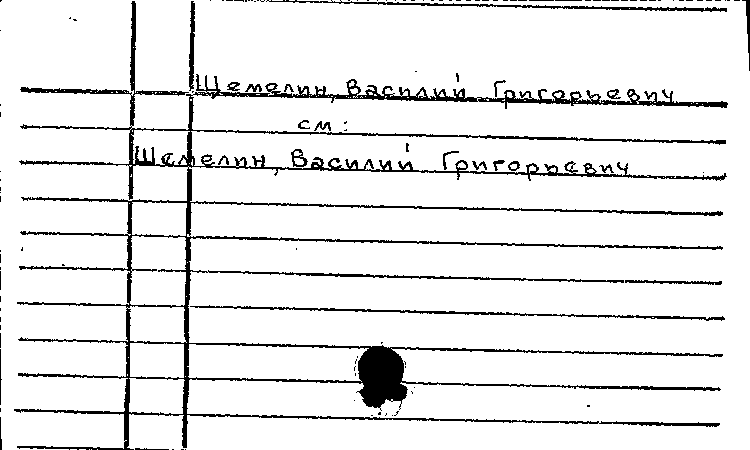 Щемелин, Василий Григорьевич
см:
Шемелин, Василий Григорьевич